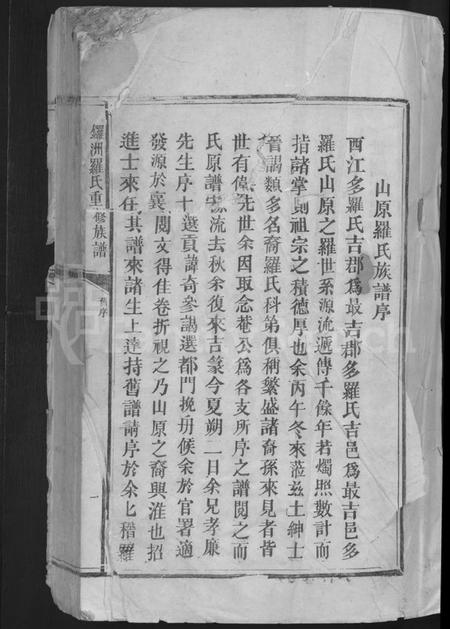 山原羅氏族譜序
西江多羅氏吉郡爲最吉郡多羅氏吉邑爲最吉邑多
羅氏山原之羅世系源流遞傳千餘年若燭照數計而
指諸掌則祖宗之積德厚也余丙午冬來蒞兹土紳士
晉謁類多名裔羅氏科第俱稱繁盛諸裔孫來見者皆
世有偉先世余因取念菴公爲各支所序之譜閱之而
氏原譜源流去秋余復來吉篆今夏朔一日余兄孝廉
先生序十選貢諱奇參謁選都門挽班候余於官署適
發源於襄閱文得佳卷折視之乃山原之裔興淮也招
進士來在其譜來諸生上達持舊譜請序於余匕稽羅
鑼洲羅氏重修族譜
序
一